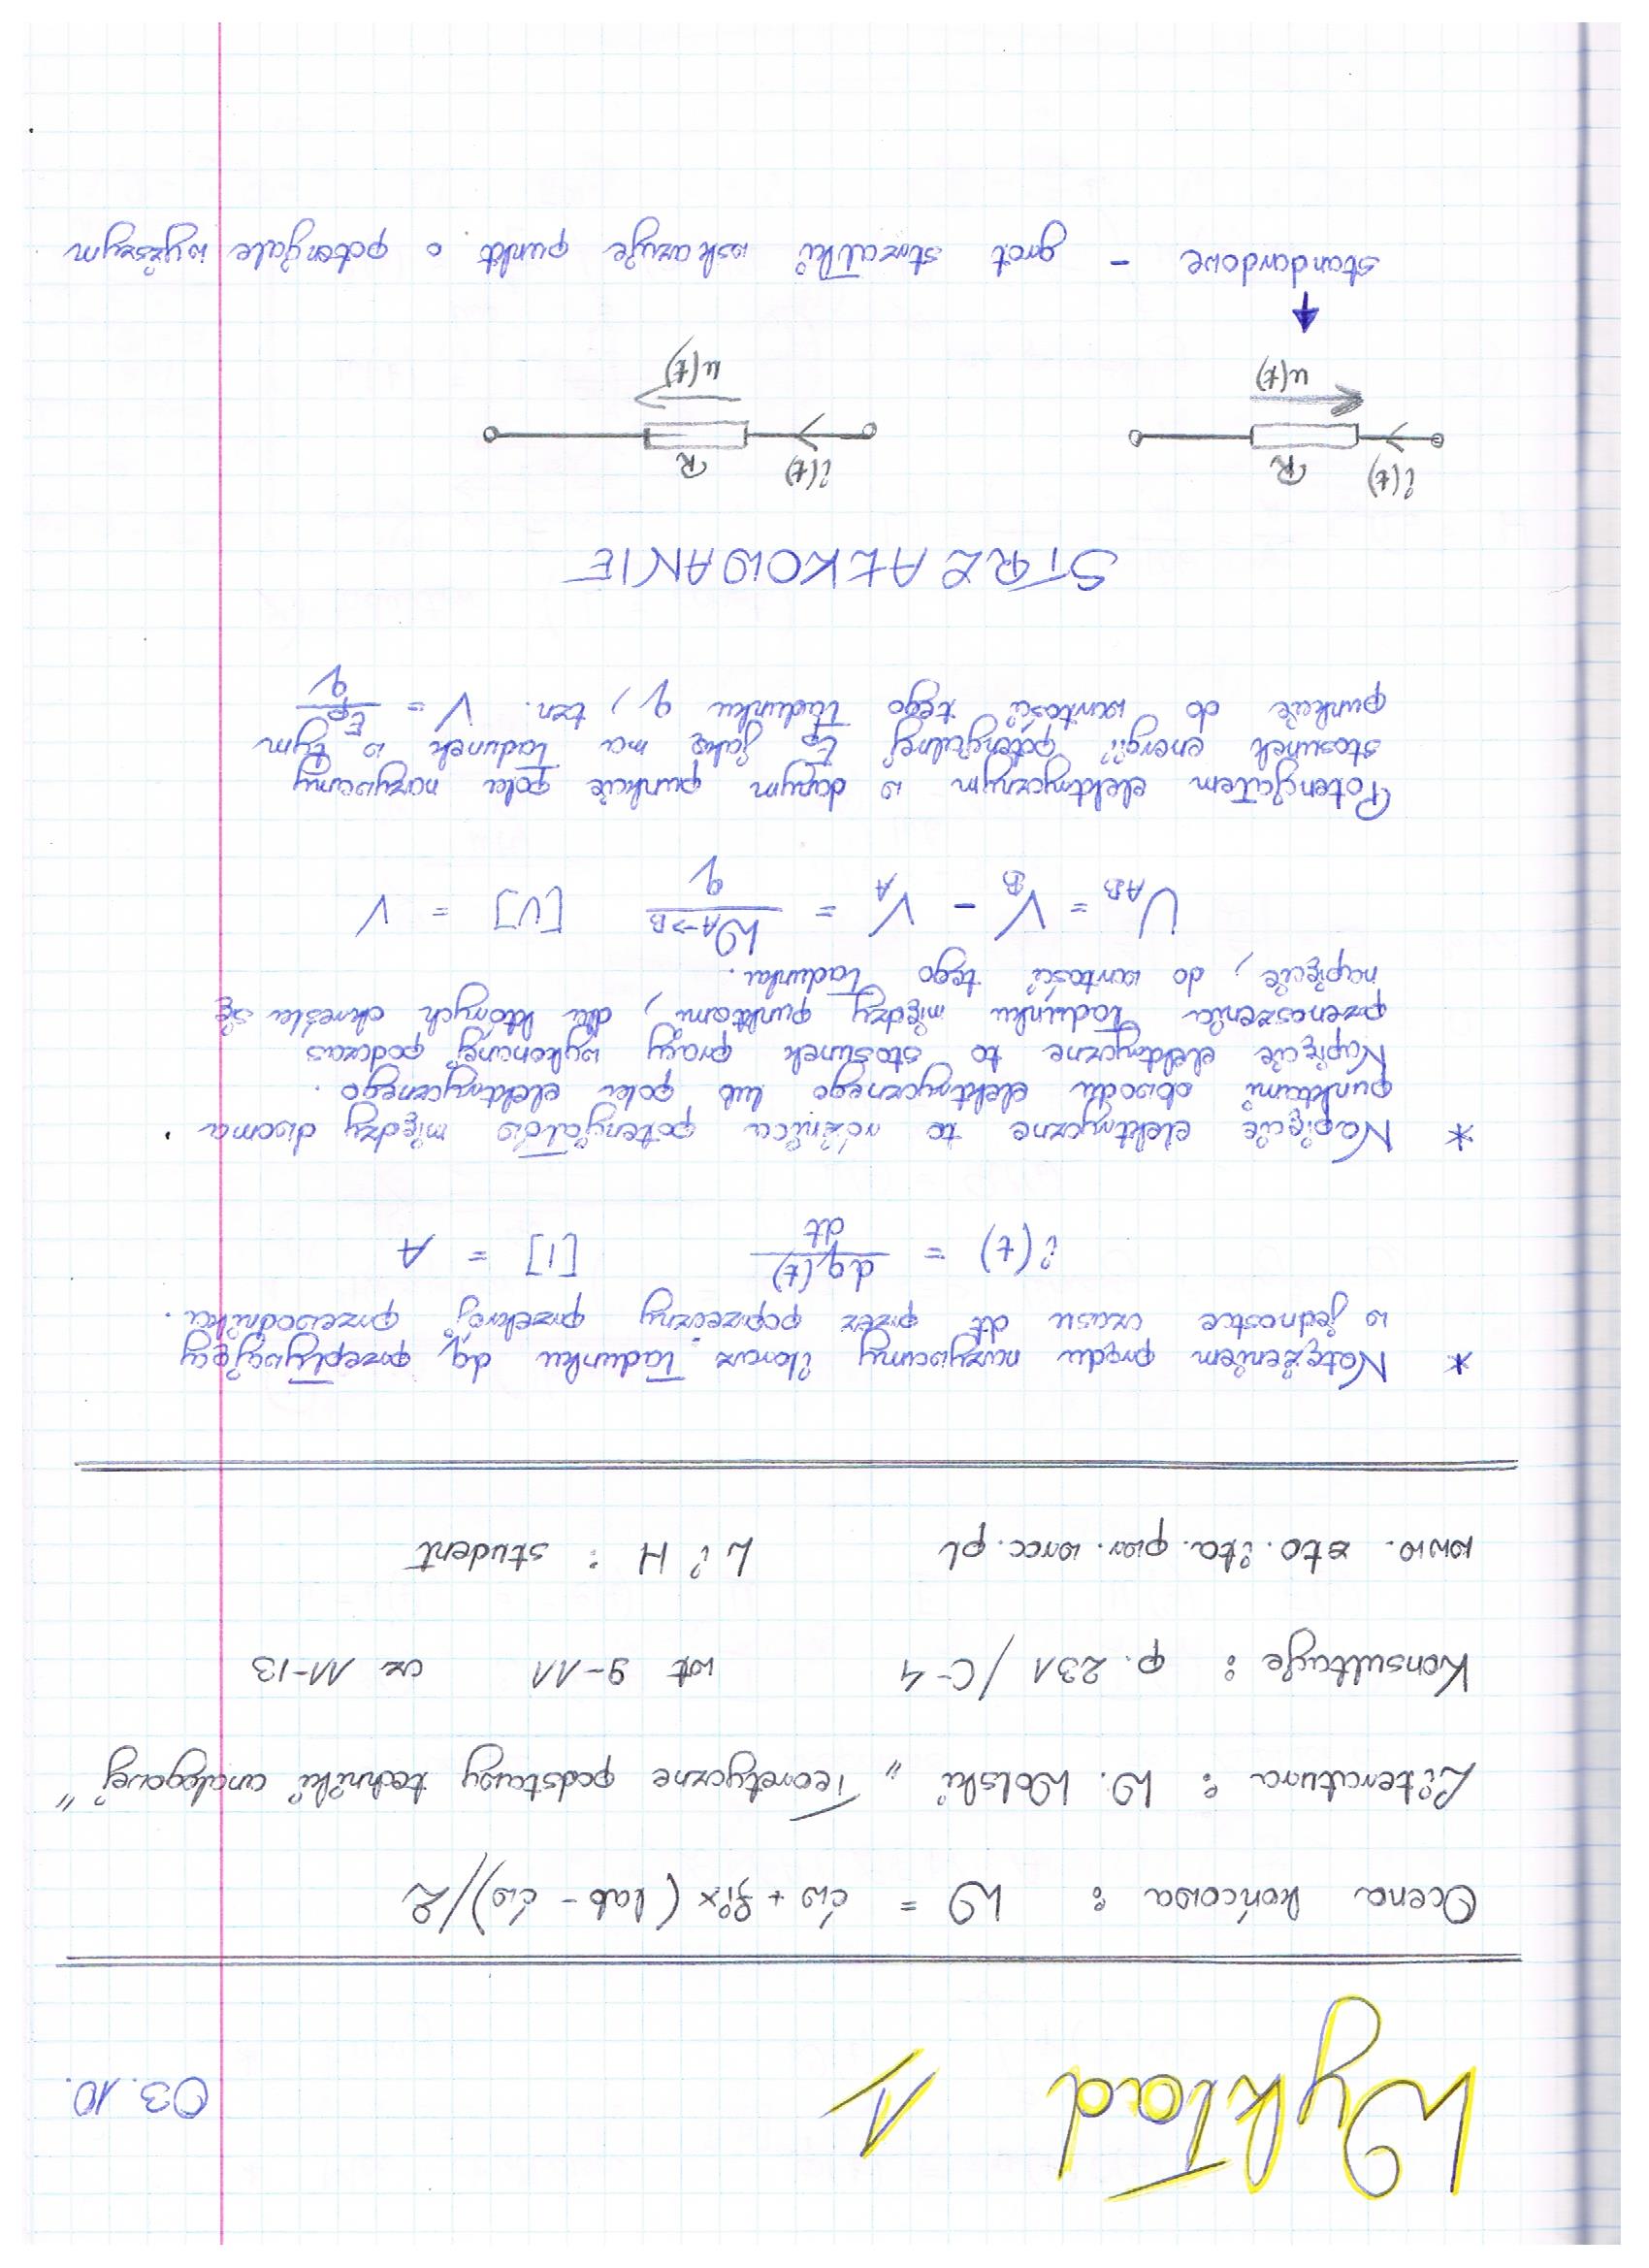 Wykład 1 03.10.
Ocena końcowa : W = ćw + fix (lab - ćw)/2
Literatura : W. Wolski "Teoretyczne podstawy techniki analogowej"
Konsultacje : p. 231 / C-4 wt 9-11 cz 11-13
www. zto. ita. pwr. wroc. pl L i H : student
* Natężeniem prądu nazywamy iloraz ładunku dq przepływający
w jednostce czasu dt przez poprzeczny przekrój przewodnika.
i(t) = dq(t)/dt [I] = A
* Napięcie elektryczne to różnica potencjałów między dwoma
punktami obwodu elektrycznego lub pola elektrycznego.
Napięcie elektryczne to stosunek pracy wykonanej podczas
przenoszenia ładunku między punktami, dla których określa się
napięcie, do wartości tego ładunku.
U_AB = V_B - V_A = W_A->B/q [U] = V
Potencjałem elektrycznym w danym punkcie pola nazywamy
stosunek energii potencjalnej Ep jaką ma ładunek w tym
punkcie do wartości tego ładunku q, tzn. V = Ep/q
STRZAŁKOWANIE
i(t) R i(t) R
u(t) u(t)
↓
standardowe - grot strzałki wskazuje punkt o potencjale wyższym